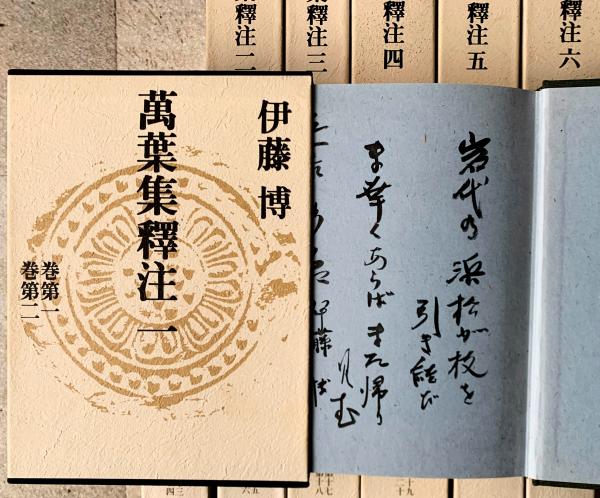 釋注二
釋注三
釋注四
釋注五
釋注六
伊藤 博
萬葉集釋注 一
巻第一
巻第二
岩代の 浜松が枝を
引き結び
ま幸くあらば また帰り
見む
伊藤博